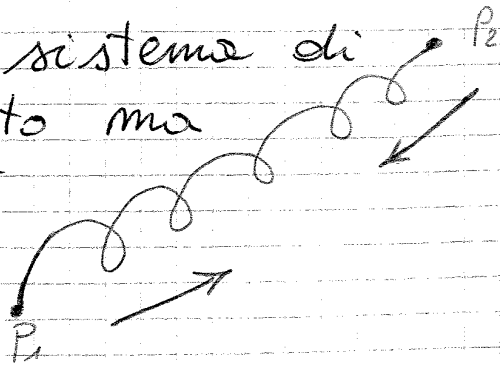 sistema di
P2
to ma
P1